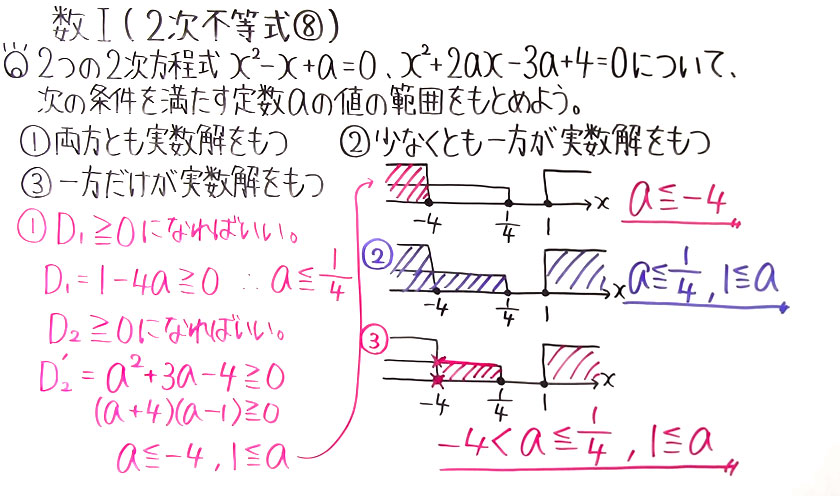 数Ⅰ(2次不等式⑧)
2つの2次方程式 x²-x+a=0、x²+2ax-3a+4=0について、
次の条件を満たす定数aの値の範囲をもとめよう。
①両方とも実数解をもつ ②少なくとも一方が実数解をもつ
③一方だけが実数解をもつ
①D₁≧0になればいい。
D₁=1-4a≧0 ∴a≦1/4
D₂≧0になればいい。
D₂'=a²+3a-4≧0
(a+4)(a-1)≧0
a≦-4,1≦a
-4 1/4 1 x
a≦-4
②
-4 1/4 1 x
a≦1/4,1≦a
③
-4 1/4 1 x
-4<a≦1/4,1≦a